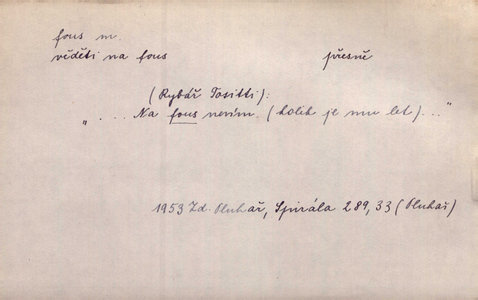 fous m.
věděti na fous přesně
(Rybář Tositti):
„ . . . . Na fous nevím. (kolik je mu let) . . . “
1953 Zd. Pluhař, Spirála 289, 33 (Pluhař)